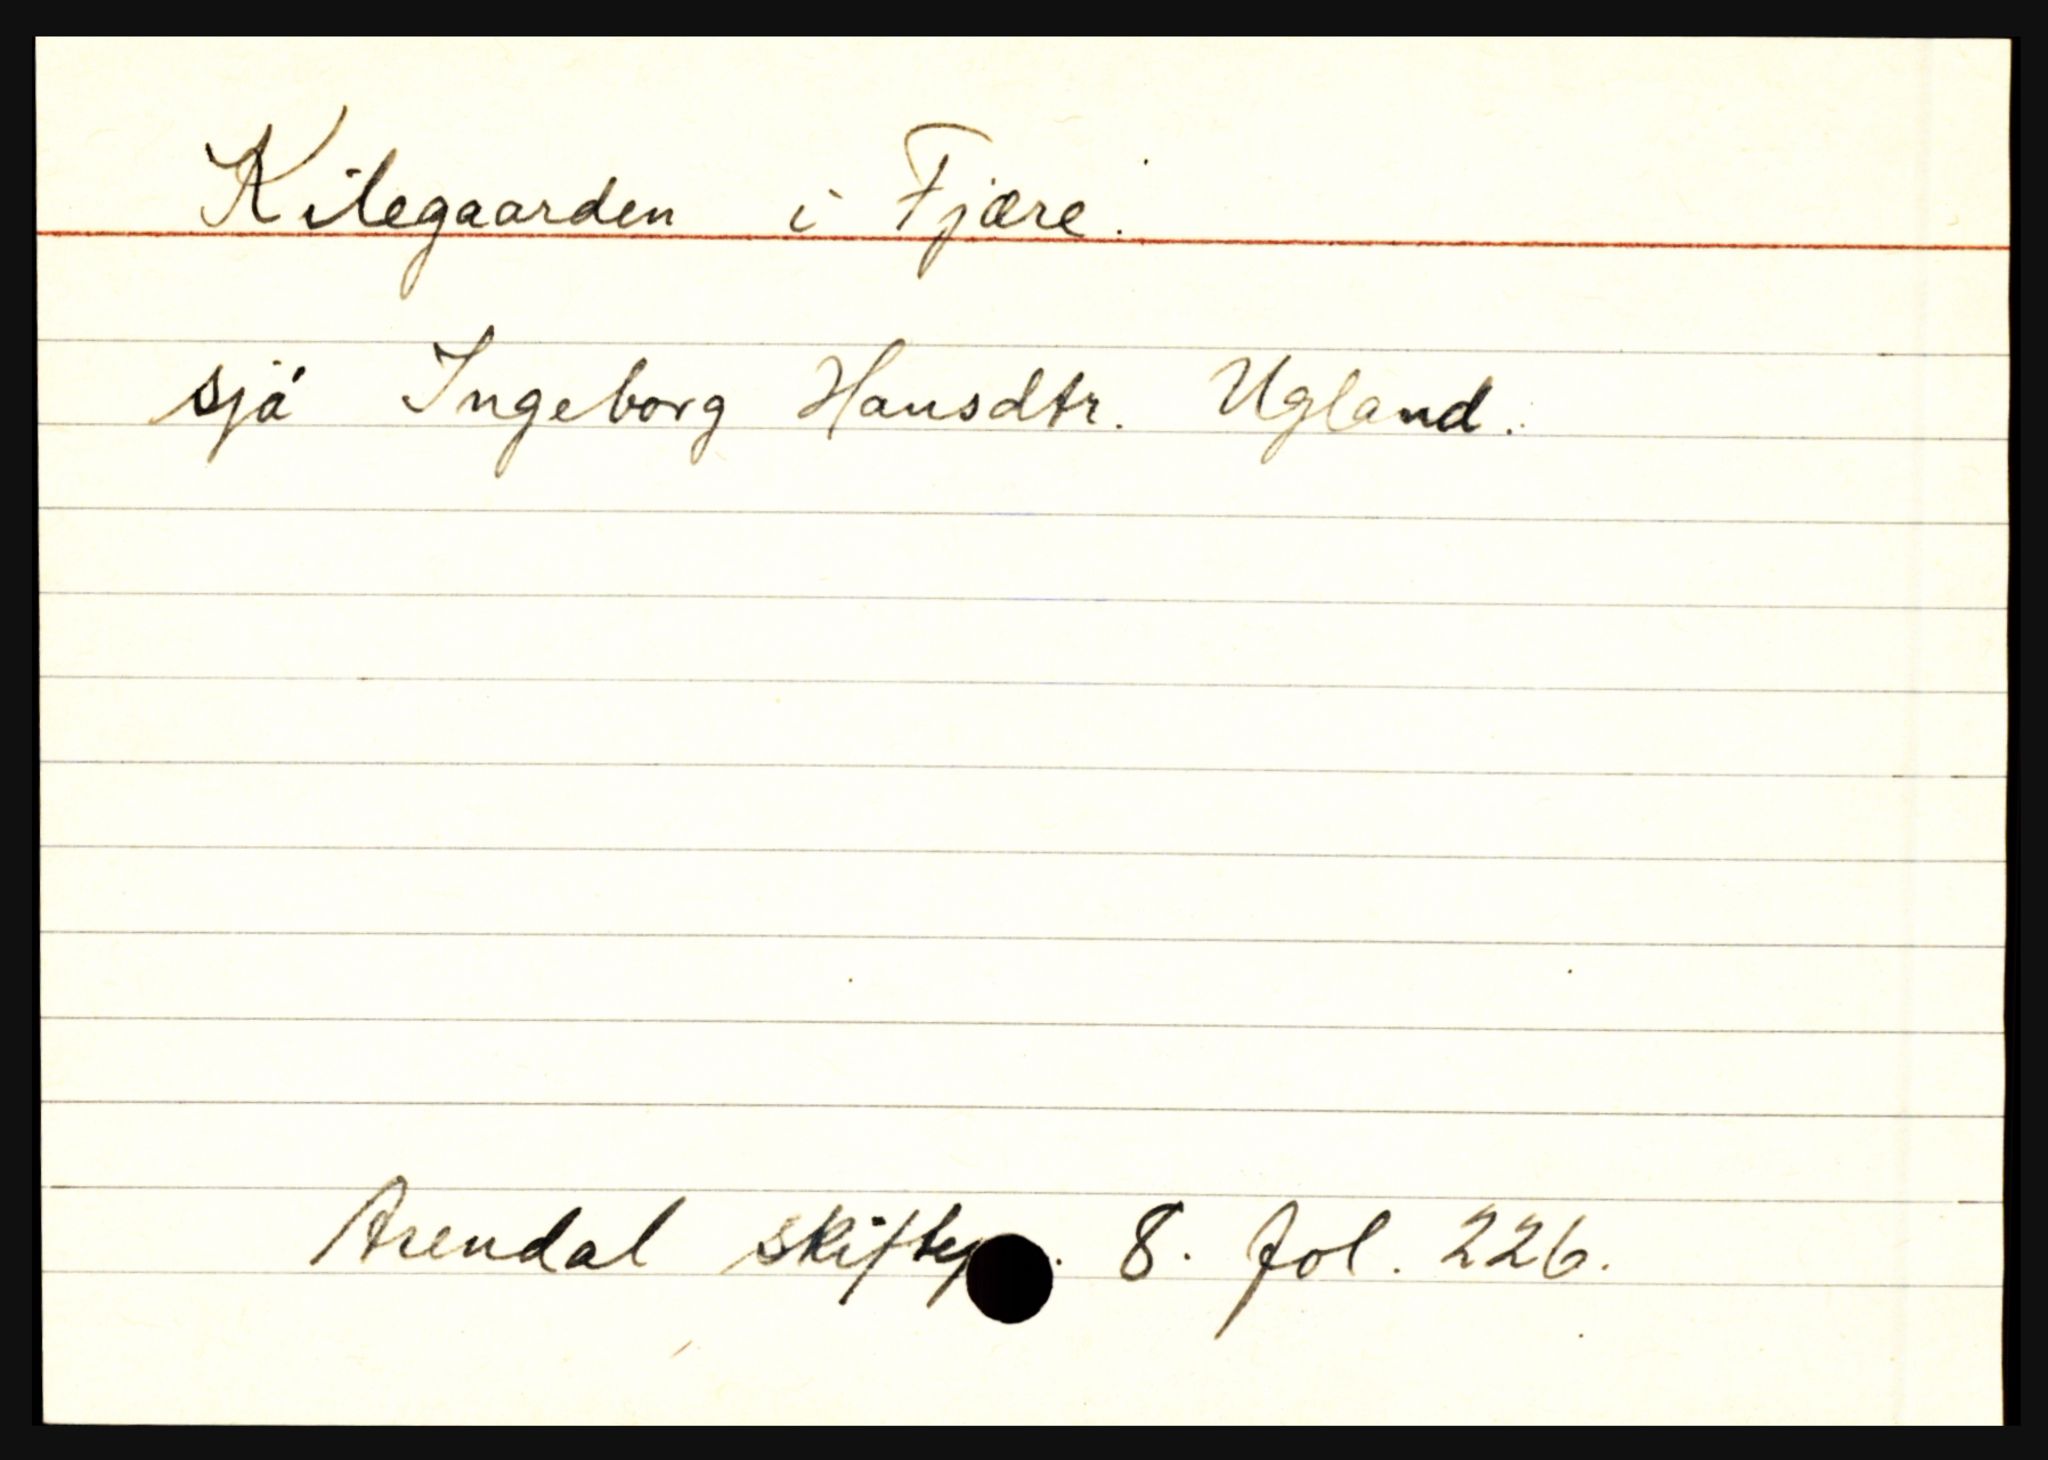 Kilegaarden i Fjære.
sjá Ingeborg Hansdtr. Ugland.
Arendal 8. fol. 226.